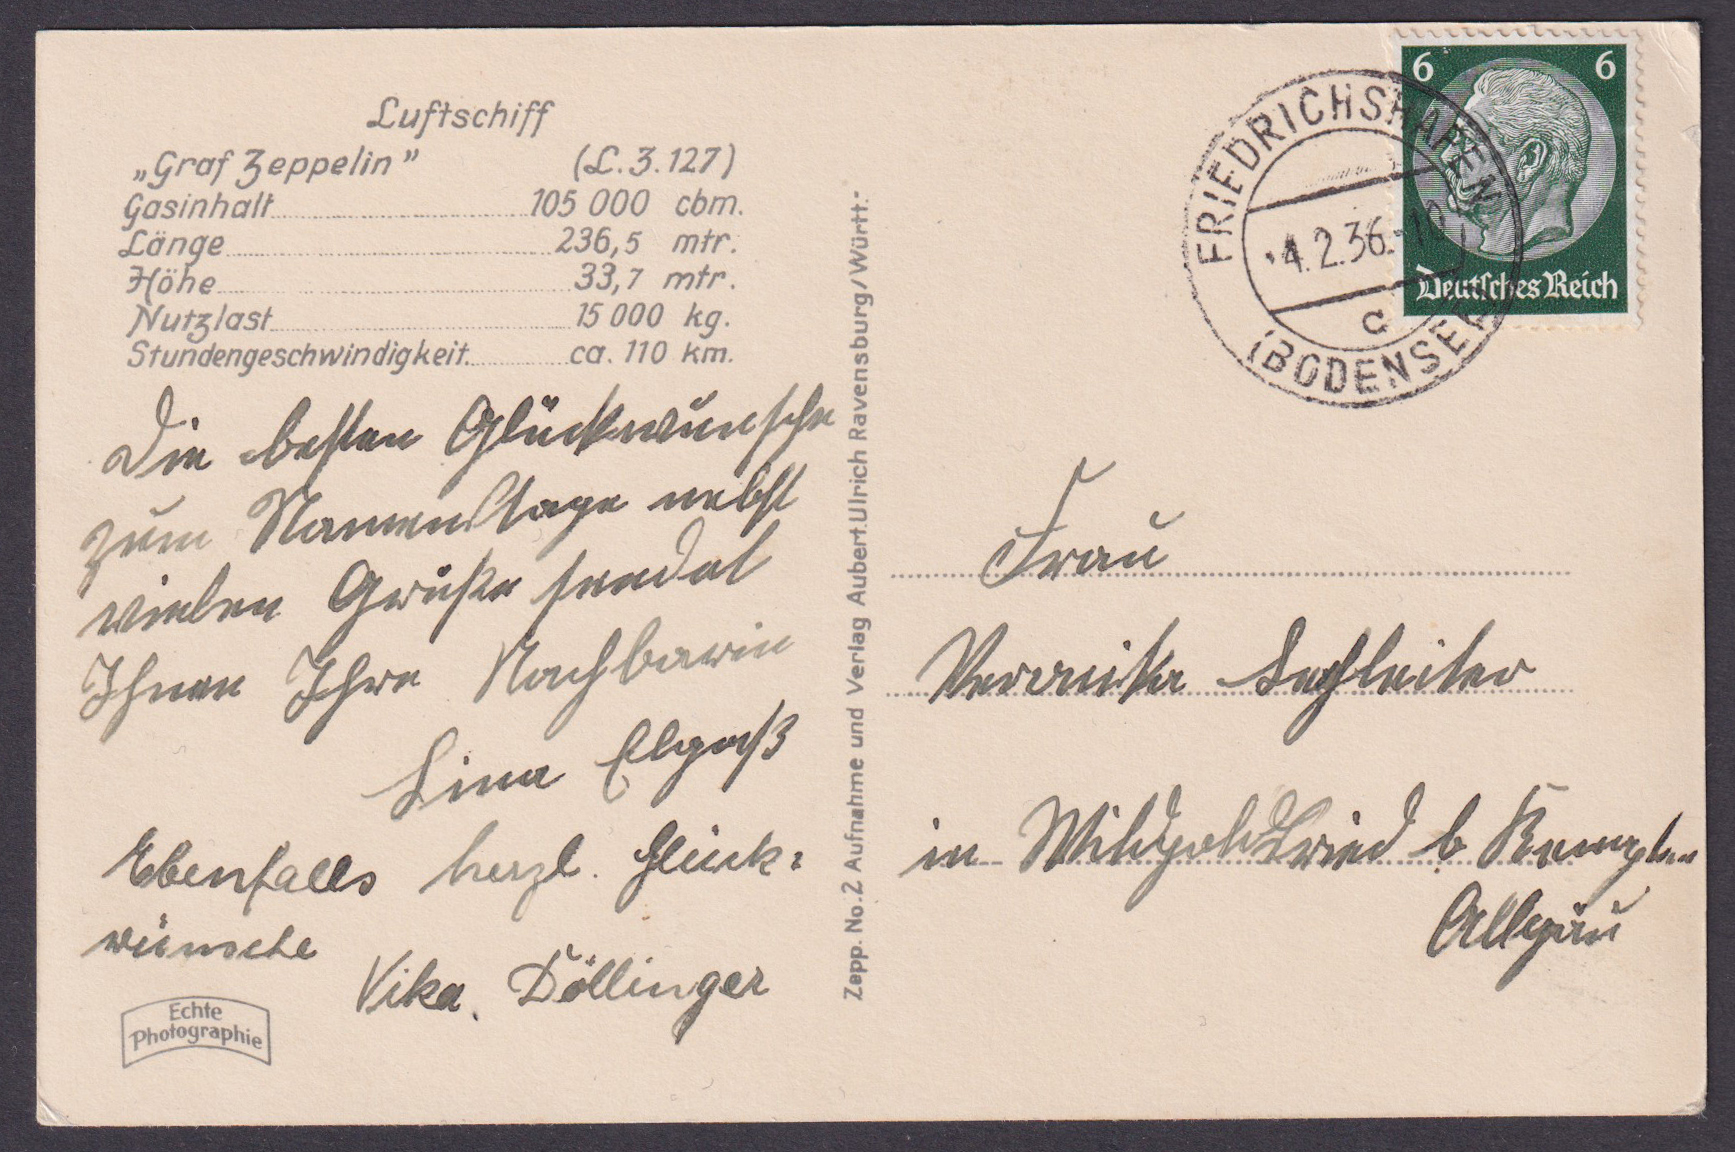 Luftschiff
„Graf Zeppelin” (L.Z.127)
Gasinhalt 105 000 cbm.
Länge 236,5 mtr.
Höhe 33,7 mtr.
Nutzlast 15 000 kg.
Stundengeschwindigkeit ca. 110 km.
Die besten Glückwünsche
zum Namenstage nebst
vielen Grüße sendet
Ihnen Ihre Nachbarin
Lina Elgaß
Ebenfalls herzl. Glück-
wünsche
Vika. Döllinger
Echte
Photographie
Zepp. No. 2 Aufnahme und Verlag Aubert.Ulrich Ravensburg/Württ.
6 6
Deutsches Reich
FRIEDRICHSHAFEN
4.2.36.-18
c
(BODENSEE)
Frau
Veronika
in Wildpoldsried b Kempten
Allgäu